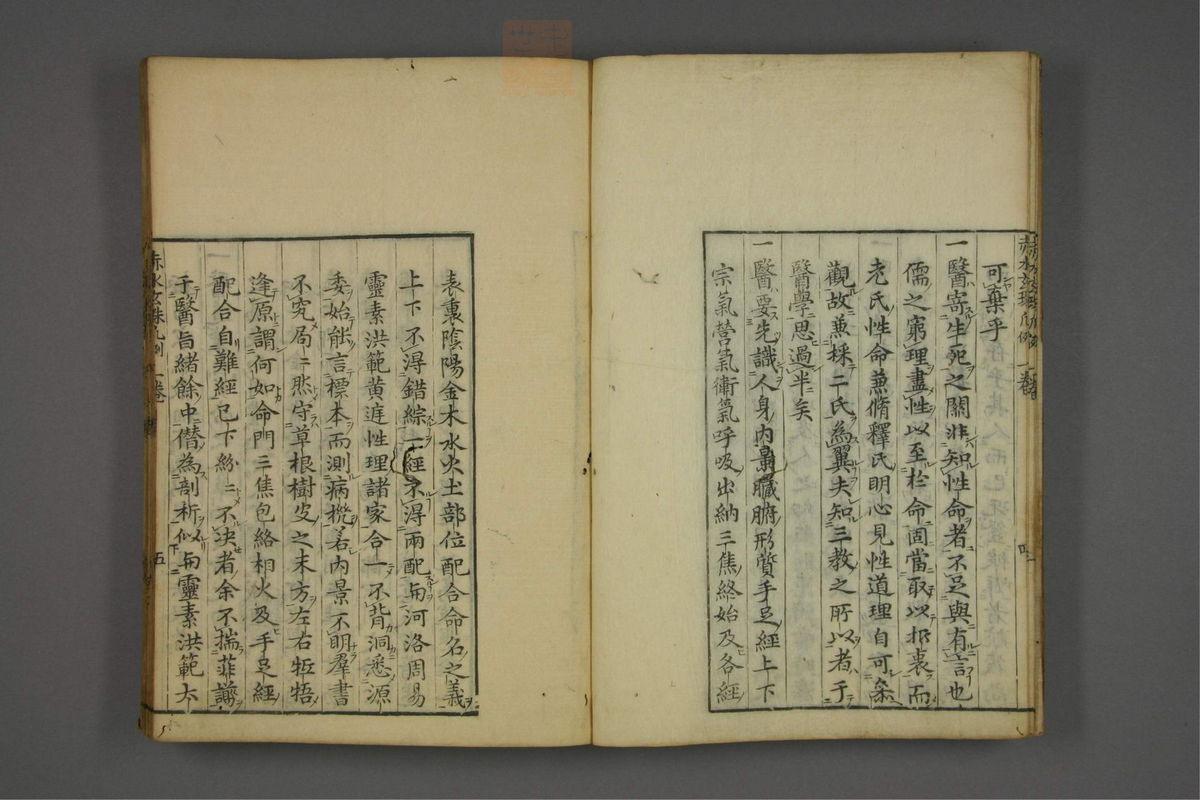 可棄乎
一醫寄生死之關非知性命者不足與有言也
儒之窮理盡性以至於命固當取以折衷而
老氏性命兼脩釋氏明心見性道理自可条
觀故兼採二氏為翼夫知三教之所以者于
醫學思過半矣
一醫要先識人身內景臟腑形質手足經上下
宗氣營氣衛氣呼吸出納三焦絡始及各經
表裏陰陽金木水火土部位配合命名之義
上下不得錯綜一經不得兩配與河洛周易
靈素洪範黃庭性理諸家合一不背洞悉源
委始能言標本而測病機若內景不明羣書
不究局〻然守草根樹皮之末方左右牴牾
逢原謂何如命門三焦包絡相火及手足經
配合自難經已下紛〻不决者余不揣菲謭
于醫旨緒餘中僭為剖析似與靈素洪範大
赤水玄珠凡例 一卷
五